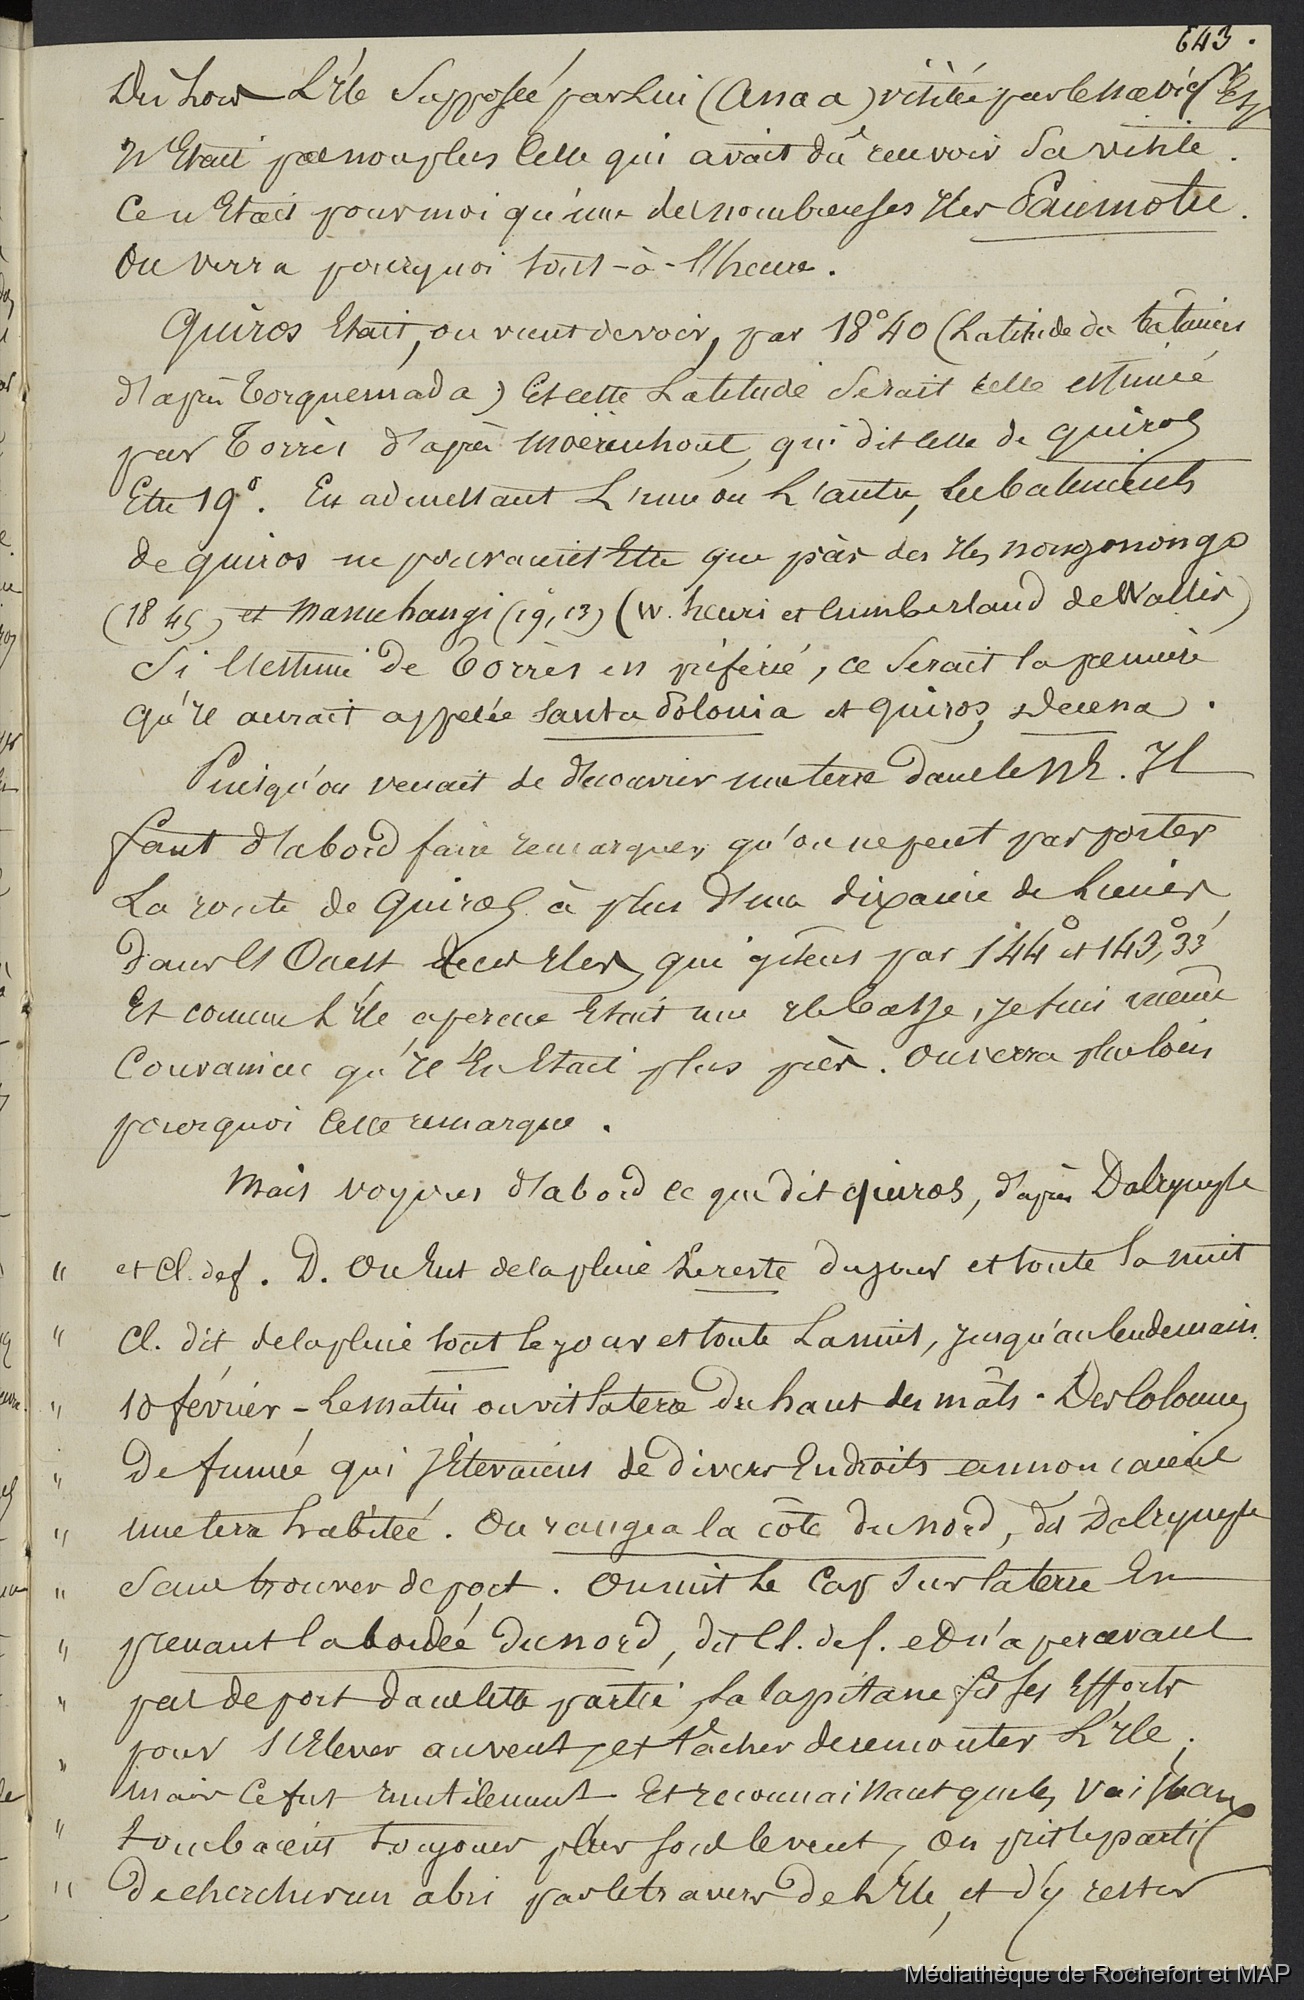 643.
Du hord L'Ile supposée par Lui (Anaa) visitée par les navig. Esp.
n'Etait pas non plus Celle qui avait dû recevoir Sa visite.
Ce n'Etait pour moi qu'une des nombreuses Iles Paumotu.
On verra pourquoi tout-à-l'heure.
Quiros Etait, on vient de voir, par 18°40 (Latitude du
d'après Torquemada) Et cette Latitude Serait celle estimée
par Torrès d'après Moërenhout, qui dit celle de Quiros
Etre 19°. En admettant L'une ou L'autre, les batiments
de Quiros ne pouvaient Etre que près des Iles nongonongo
(18 45) et Manuhangi (19, 13) (W. henri et Cumberland de Wallis)
Si l'estime de Torrès est préférée, ce Serait la première
qu'il aurait appelée Santa Polonia et Quiros, Decena.
Puisqu'on venait de découvrir une terre dans le NE. Il
faut d'abord faire remarquer, qu'on ne peut pas porter
La route de Quiros à plus d'une dixaine de Lieues
dans l'Ouest de ces Iles, qui gisent par 144° et 143°,33'
Et comme L'Ile aperçue Etait une Ile basse, je suis même
Convaincu qu'il En Etait plus près. On verra plus loin
pourquoi Cette remarque.
Mais voyons d'abord ce que dit Quiros, d'après Dalrymple
" et Cl. def. D. On Eut de la pluie Le reste du jour et toute la nuit
" Cl. dit de la pluie tout le jour et toute La nuit, jusqu'au lendemain.
" 10 février - Le matin on vit la terre du haut des mâts. Des Colonnes
" De fumée qui s'élevaient de divers Endroits annonçaient
" une terre habitée. On rangea la côte du nord, dit Dalrymple
" Sans trouver de port. On mit le Cap Sur la terre En
" prenant la bordée du nord, dit Cl. def. et n'apercevant
" pas de port dans cette partie, la Capitane fit ses Efforts
" pour s'Elever au vent, et tâcher de remonter L'Ile;
" mais Ce fut inutilement Et reconnaissant que les Vaisseaux
" tombaient toujours plus sous le vent, On prit le parti
" De chercher un abri par le travers de L'Ile, et d'y rester
Médiathèque de Rochefort et MAP